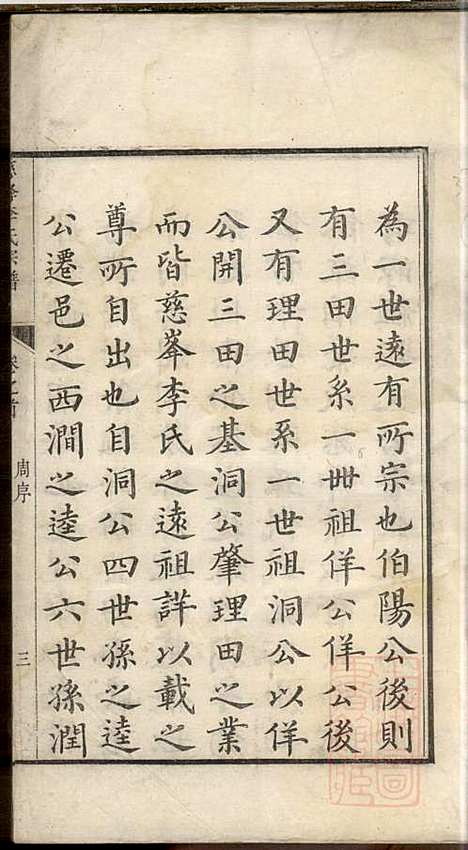 為一世遠有所宗也伯陽公後則
有三田世系一世祖佯公佯公後
又有理田世系一世祖洞公以佯
公開三田之基洞公肇理田之業
而皆慈峯李氏之遠祖詳以載之
尊所自出也自洞公四世孫之逵
公遷邑之西澗之逵公六世孫潤
氏宗譜
卷之首
周序
三